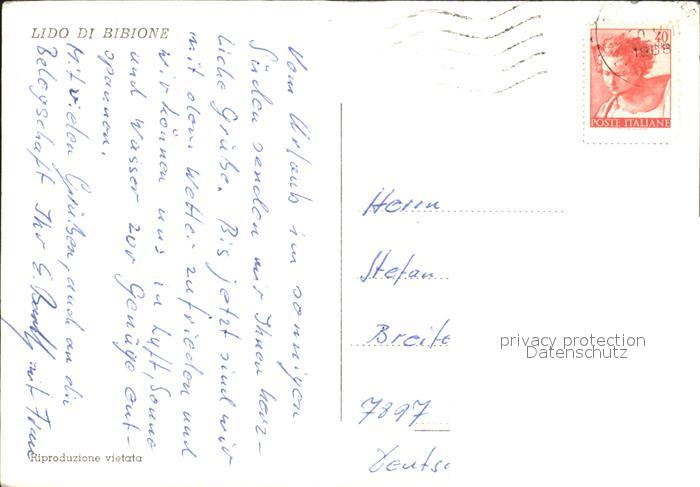 LIDO DI BIBIONE
Vom Urlaub im sonnigen
Süden senden wir Ihnen herz-
liche Grüße. Bis jetzt sind wir
mit dem Wetter zufrieden und
wir können uns in Luft, Sonne
und Wasser zur Genüge ent-
spannen.
Mit vielen Grüßen, auch an die
Belegschaft Ihr E. mit Frau
Riproduzione vietata
40
1968
POSTE ITALIANE
Herrn
Stefan
Breite
7897
Deutsc
privacy protection
Datenschutz